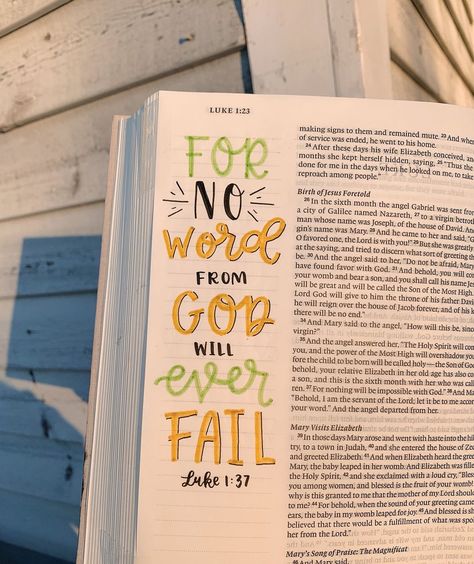 LUKE 1:23
FOR
NO
Word
FROM
GOD
WILL
ever
FAIL
Luke 1:37
making signs to them and remained mute. 23 And
of service was ended, he went to his home.
24 After these days his wife Elizabeth conceived, and
months she kept herself hidden, saying, 25 "Thus the
done for me in the days when he looked on me, to take
reproach among people."
Birth of Jesus Foretold
26 In the sixth month the angel Gabriel was sent from
a city of Galilee named Nazareth, 27 to a virgin betroth
man whose name was Joseph, of the house of David. And
gin's name was Mary. 28 And he came to her and said, "Gr
O favored one, the Lord is with you!" 29 But she was greatly
at the saying, and tried to discern what sort of greeting th
be. 30 And the angel said to her, "Do not be afraid, Mary
have found favor with God. 31 And behold, you will con
your womb and bear a son, and you shall call his name Jes
will be great and will be called the Son of the Most High.
Lord God will give to him the throne of his father Davi
he will reign over the house of Jacob forever, and of his
there will be no end."
34 And Mary said to the angel, "How will this be, sinc
virgin?"
35 And the angel answered her, "The Holy Spirit will com
you, and the power of the Most High will overshadow you
fore the child to be born will be called holy—the Son of
behold, your relative Elizabeth in her old age has also co
a son, and this is the sixth month with her who was call
ren. 37 For nothing will be impossible with God." 38 And Mar
"Behold, I am the servant of the Lord; let it be to me accor
your word." And the angel departed from her.
Mary Visits Elizabeth
39 In those days Mary arose and went with haste into the hill
try, to a town in Judah, 40 and she entered the house of Zec
and greeted Elizabeth. 41 And when Elizabeth heard the greet
Mary, the baby leaped in her womb. And Elizabeth was fille
the Holy Spirit, 42 and she exclaimed with a loud cry, "Bless
you among women, and blessed is the fruit of your womb!
why is this granted to me that the mother of my Lord should
to me? 44 For behold, when the sound of your greeting came
ears, the baby in my womb leaped for joy. 45 And blessed is she
believed that there would be a fulfillment of what was spok
from the Lord."
Mary's Song of Praise: The Magnificat
46 And Mary said,